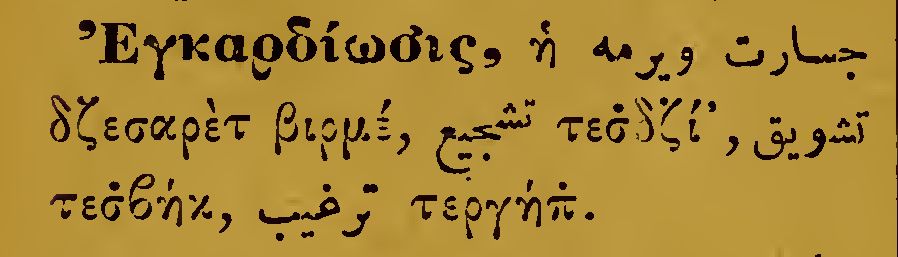 Ἐγκαρδίωσις, ἡ جسارت ويرمه
δζεσαρὲτ βιρμέ, تشجيع τεσ̇δζί’, تشويق
τεσ̇βήκ, ترغيب τεργήπ̇.